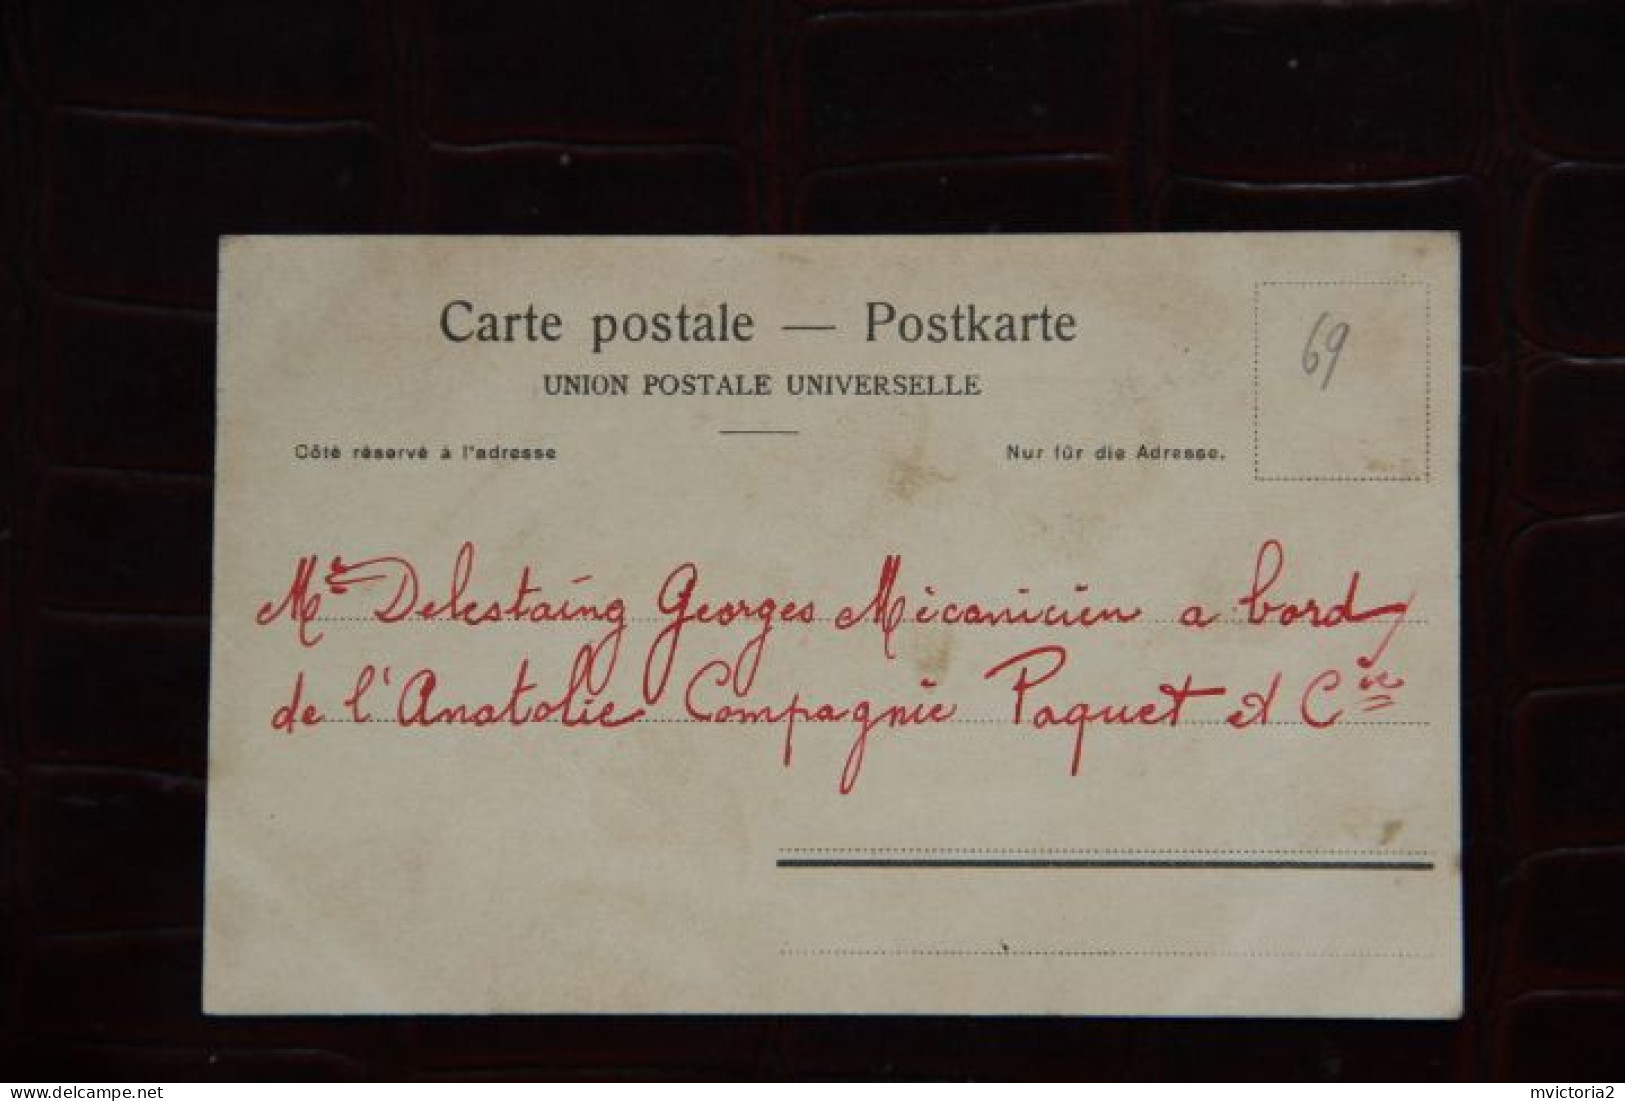 Carte postale — Postkarte
UNION POSTALE UNIVERSELLE
Côté réservé à l'adresse
Nur für die Adresse.
69
Mr Delestaing Georges Mécanicien a bord
de l'Anatolie Compagnie Paquet et Cie
mvictoria2